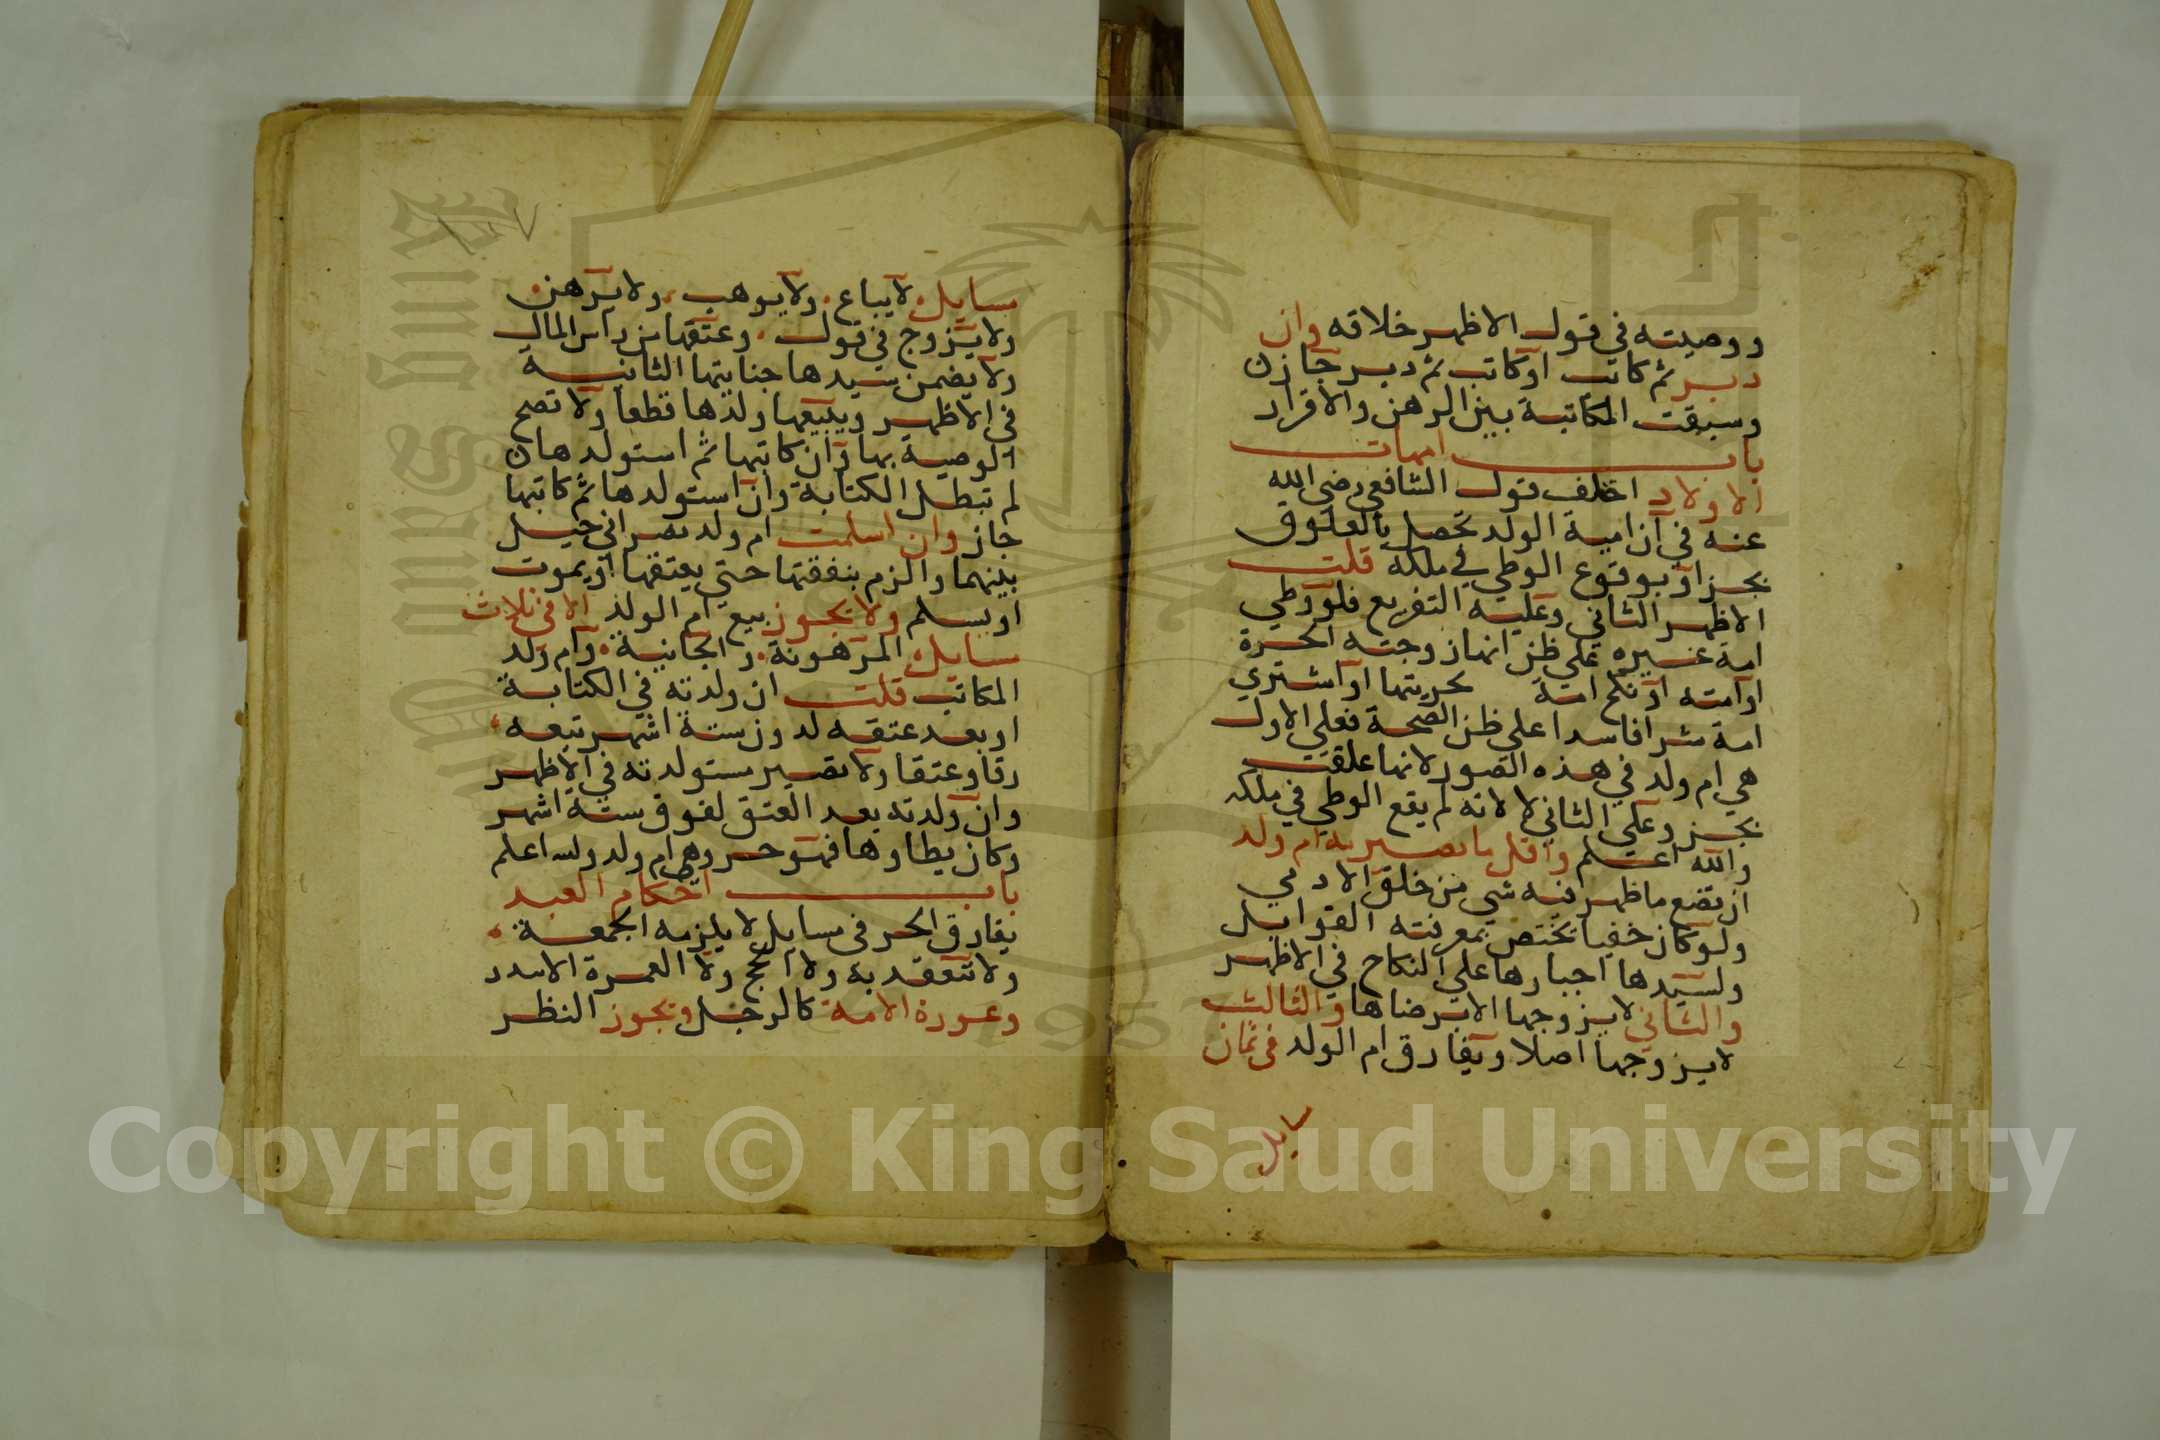 ووصيته في قول الاظهر خلافه وان
دبر ثم كاتب او كاتب ثم دبر جازن
وسبقت المكاتبة بين الرهن والاقرار
باب امهات
الاولاد اختلف قول الشافعي رضي الله
عنه في ان امية الولد تحصل بالعلوق
بحر او بوقوع الوطي في ملكه قلت
الاظهر الثاني وعليه التفريع فلو وطي
امة غيره علي ظن انها زوجته الحرة
او امته او نكح امة بحريتها او اشتري
امة شرا فاسدا علي ظن الصحة فعلي الاول
هي ام ولد في هذه الصور لانها علقت
بحر وعلي الثاني لا لانه لم يقع الوطي في ملكه
والله اعلم واقل ما تصير به ام ولد
ان تضع ما ظهر فيه شي من خلق الادمي
ولو كان خفيا تختص بمعرفته القوابل
ولسيدها اجبارها علي النكاح في الاظهر
والثاني لا يزوجها الا برضاها والثالث
لا يزوجها اصلا ويفارق ام الولد في ثمان
سايل
مسايل لا يباع ولا يوهب ولا يرهن
ولا يزوج في قول وعتقها من راس المال
ولا يضمن سيدها جنايتها الثانية
في الاظهر ويبيعها ولدها قطعا ولا تصح
الوصية بها وان كاتبها ثم استولدها ن
لم تبطل الكتابة وان استولدها ثم كاتبها
جاز وان اسلمت ام ولد نصراني حيل
بينهما والزم بنفقتها حتي يعتقها او يموت
او يسلم ولا يجوز بيع ام الولد الا في ثلاث
مسايل المرهونة والجانية وام ولد
المكاتب قلت ان ولدته في الكتابة
او بعد عتقه لدون ستة اشهر تبعه
رقا وعتقا ولا تصير مستولدته في الاظهر
وان ولدته بعد العتق لفوق ستة اشهر
وكان يطاوها فهو حر وهي ام ولد والله اعلم
باب احكام العبد
يفارق الحر في مسايل لا يلزمه الجمعة
ولا تنعقد به ولا الحج ولا العمرة الا بنذر
وعورة الامة كالرجل ويجوز النظر
Copyright © King Saud University
1957